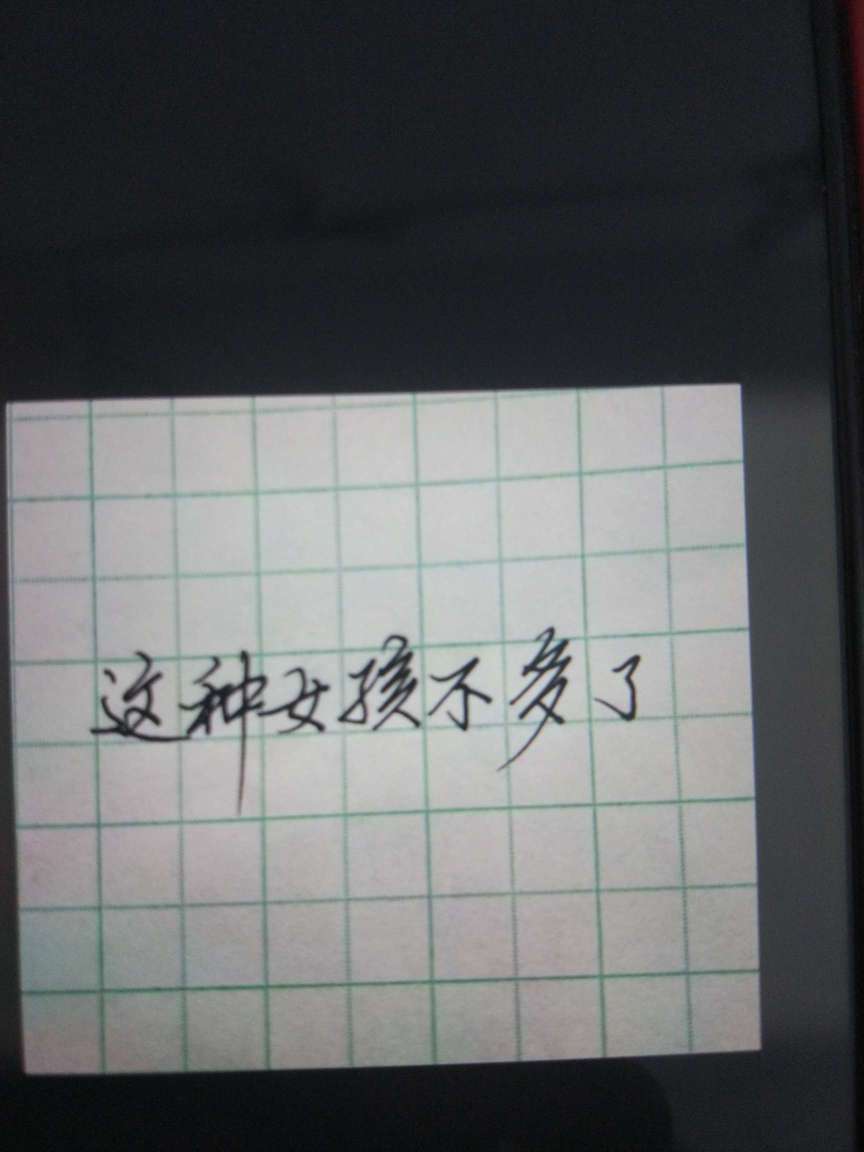 这种女孩不多了